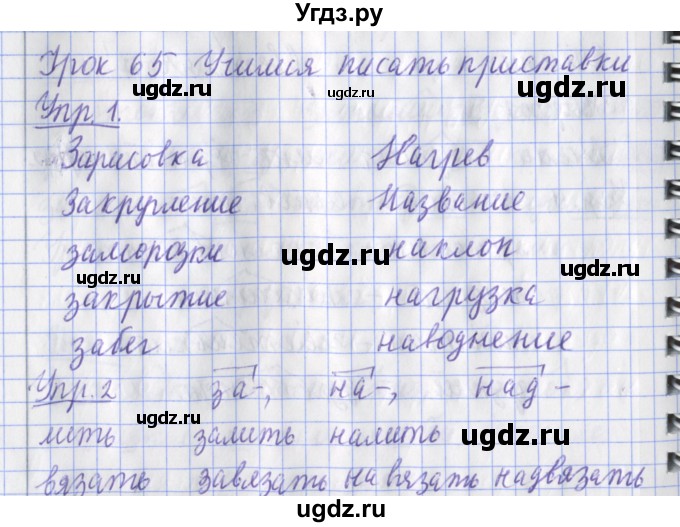 Угдз.ру
Урок 65 Учимся писать приставки
Упр. 1.
Зарисовка Нагрев
Закругление Название
заморозки наклон
закрытие нагрузка
забег наводнение
Упр. 2 за-, на-, над-
лить залить налить
вязать завязать навязать надвязать
ugdz.ru
ugdz.ru
ugdz.ru
ugdz.ru
ugdz.ru
ugdz.ru
ugdz.ru
ugdz.ru
ugdz.ru
ugdz.ru
ugdz.ru
ugdz.ru